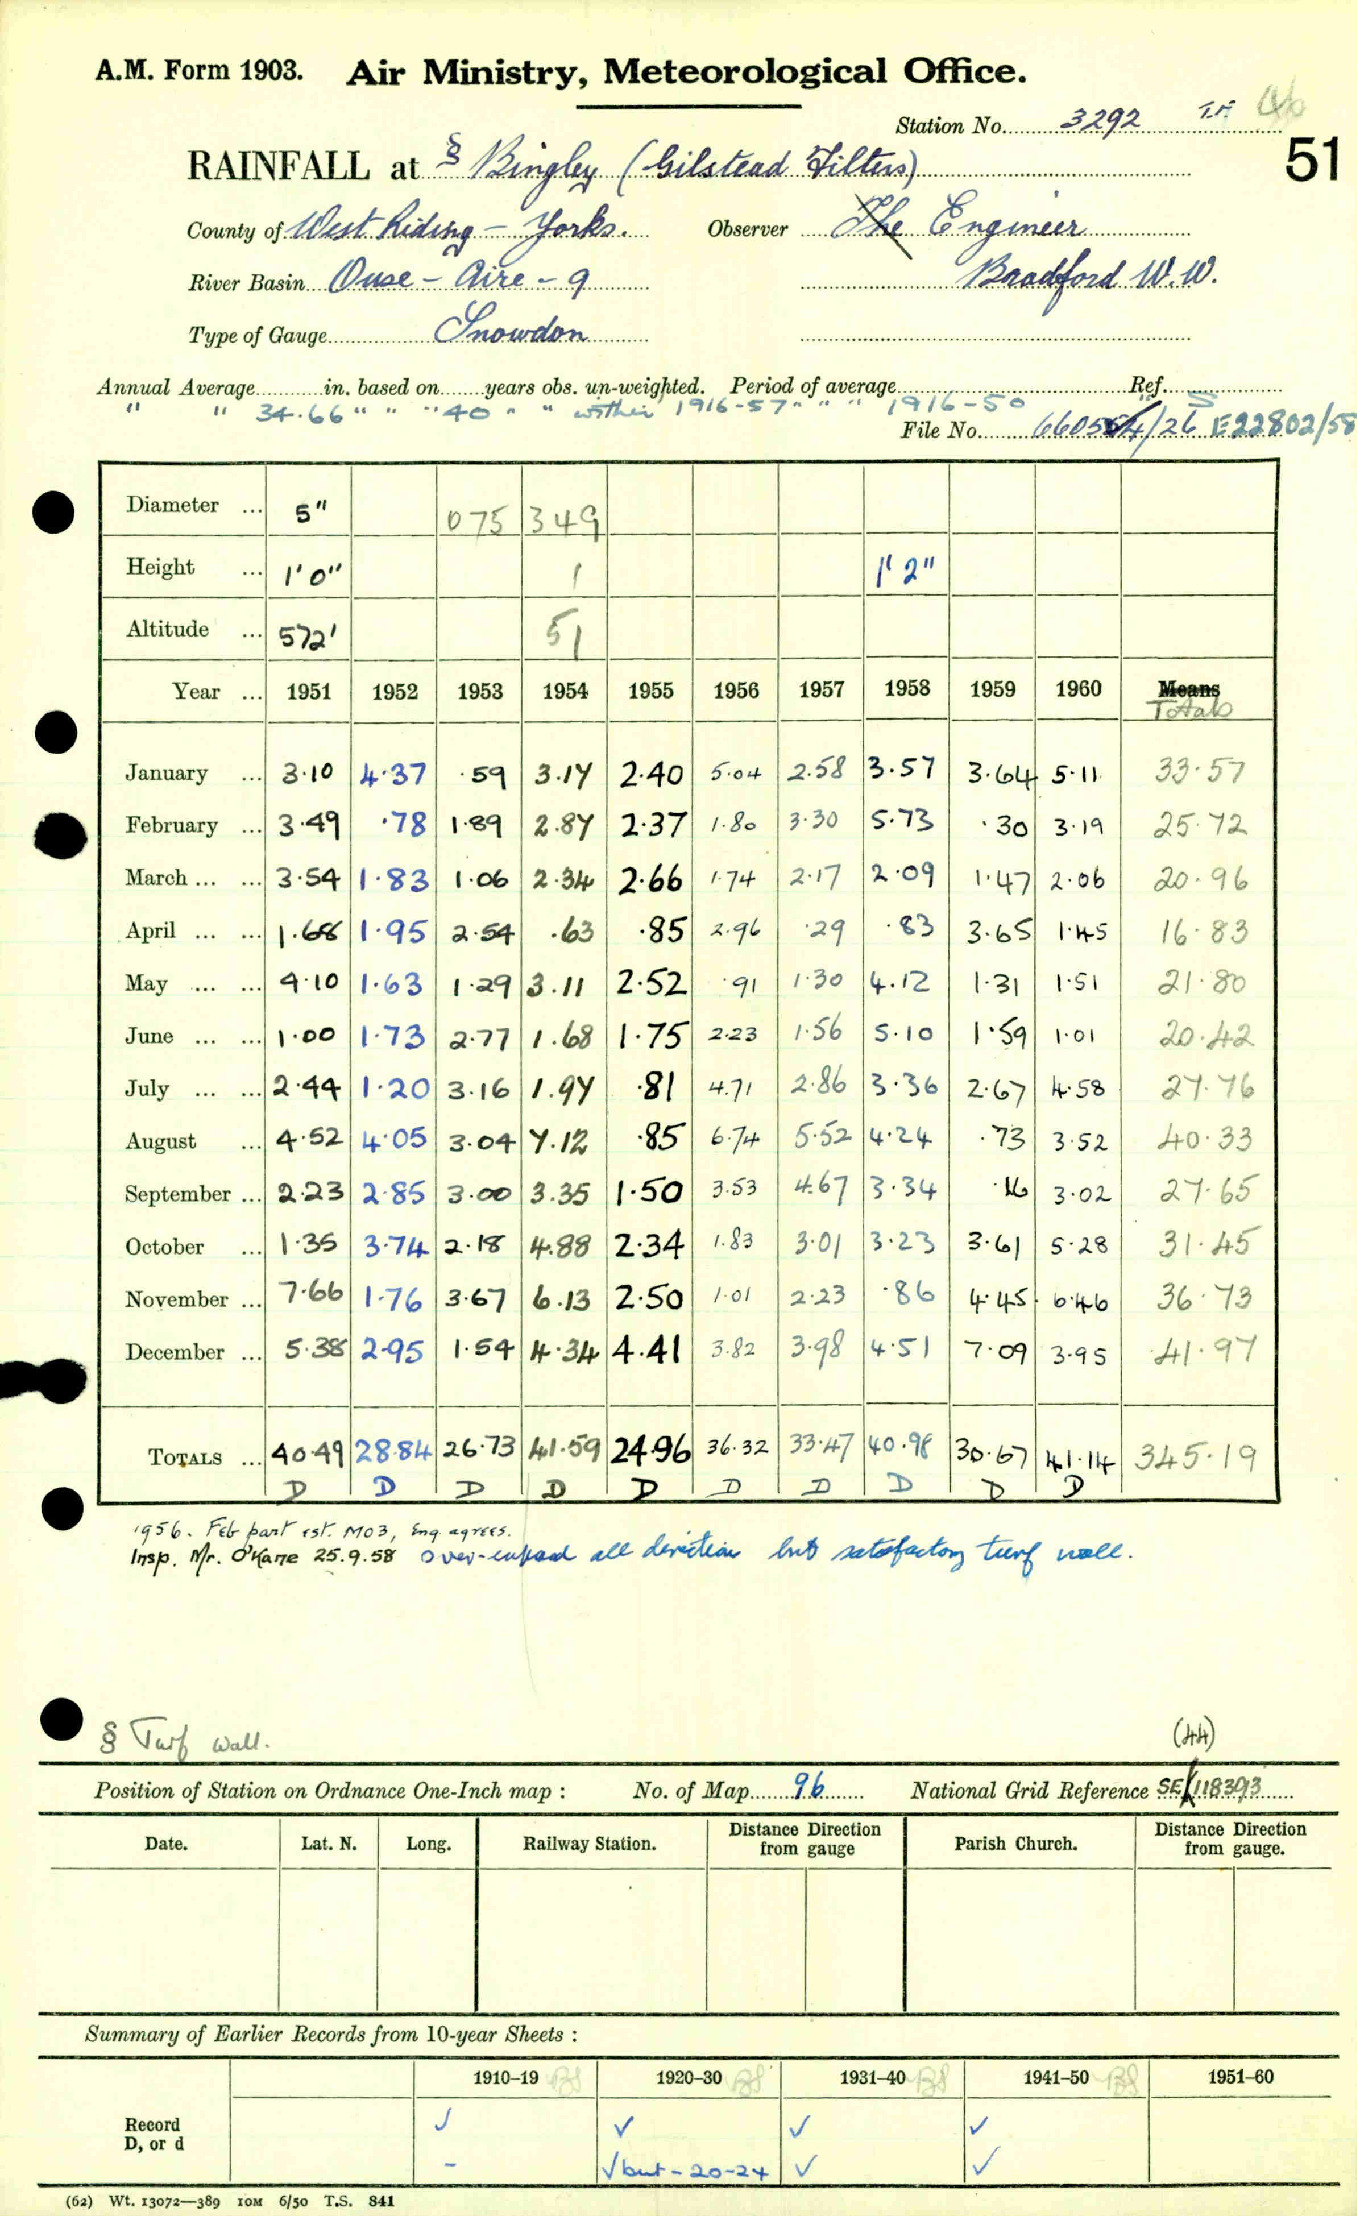 A.M. Form 1903. Air Ministry, Meteorological Office.
Station No. 3292
51
RAINFALL at § Bingley (Gilstead Filters)
County of West Riding - Yorks. Observer The Engineer
River Basin Ouse - Aire - 9 Bradford W.W.
Type of Gauge Snowdon
Annual Average in. based on years obs. un-weighted. Period of average Ref.
" " 34.66 " " " 40 " " within 1916-57 " " " 1916-50
File No. /26 E22802/58
Diameter ... 5" 075 349
Height ... 1'0" 1 1' 2"
Altitude ... 572' 51
Year ... 1951 1952 1953 1954 1955 1956 1957 1958 1959 1960 Means
Totals
January ... 3.10 4.37 .59 3.17 2.40 5.04 2.58 3.57 3.64 5.11 33.57
February ... 3.49 .78 1.89 2.87 2.37 1.80 3.30 5.73 .30 3.19 25.72
March ... ... 3.54 1.83 1.06 2.34 2.66 1.74 2.17 2.09 1.47 2.06 20.96
April ... ... 1.68 1.95 2.54 .63 .85 2.96 .29 .83 3.65 1.45 16.83
May ... ... 4.10 1.63 1.29 3.11 2.52 .91 1.30 4.12 1.31 1.51 21.80
June ... ... 1.00 1.73 2.77 1.68 1.75 2.23 1.56 5.10 1.59 1.01 20.42
July ... ... 2.44 1.20 3.16 1.97 .81 4.71 2.86 3.36 2.67 4.58 27.76
August ... 4.52 4.05 3.04 7.12 .85 6.74 5.52 4.24 .73 3.52 40.33
September ... 2.23 2.85 3.00 3.35 1.50 3.53 4.67 3.34 .16 3.02 27.65
October ... 1.35 3.74 2.18 4.88 2.34 1.83 3.01 3.23 3.61 5.28 31.45
November ... 7.66 1.76 3.67 6.13 2.50 1.01 2.23 .86 4.45 6.46 36.73
December ... 5.38 2.95 1.54 4.34 4.41 3.82 3.98 4.51 7.09 3.95 41.97
TOTALS ... 40.49 28.84 26.73 41.59 24.96 36.32 33.47 40.98 30.67 41.14 345.19
D D D D D D D D D D
1956. Feb part est. MO3, Eng agrees.
Insp. Mr. O'Kane 25.9.58 Over-exposed all directions but satisfactory turf wall.
§ Turf wall.
(44)
Position of Station on Ordnance One-Inch map : No. of Map 96 National Grid Reference SE 118393
Date. Lat. N. Long. Railway Station. Distance from gauge Direction Parish Church. Distance from gauge. Direction
Summary of Earlier Records from 10-year Sheets :
1910–19 1920–30 1931–40 1941–50 1951–60
Record ✓ ✓ ✓ ✓
D, or d - ✓ but - 20-24 ✓ ✓
(62) Wt. 13072—389 10M 6/50 T.S. 841